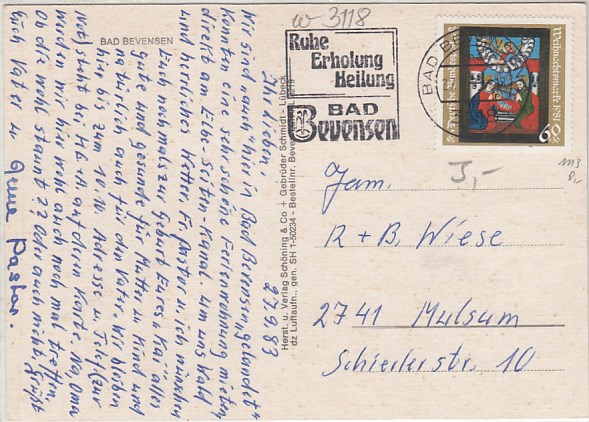 BAD BEVENSEN
Ihr Lieben!
27.9.83
Wir sind "auch hier in Bad Bevensen gelandet"
konnten eine sehr schöne Ferienwohnung mieten
direkt am Elbe-Seiten-Kanal. Um uns Wald
und herrliches Wetter. F. Pastor u. ich wünschen
Euch nochmals zur Geburt Eures u. Kai alles
Gute und gesunde für Mutter u. Kind und
natürlich auch für den Vater. Wir bleiben
hier bis zum 10.10. Adresse u. Telef. (zur
Not) steht bei H. auf deren Karte. Na, Oma
würden wir hier wohl auch noch mal treffen.
Ob die wohl staunt?? Oder auch nicht, grüßt
Euch Vater u. Gerne Pastor.
Herst. u. Verlag Schöning & Co + Gebrüder Schmidt - Lübeck
dz Luftaufn., gen. SH 1-50234 - Bestellnr. Beven
w-3118
Ruhe
Erholung
Heilung
BAD
Bevensen
BAD BE
Weihnachtsmarke 1981
60
J,-
1113
8,-
Fam.
R + B. Wiese
2741 Mulsum
Schierlerstr. 10